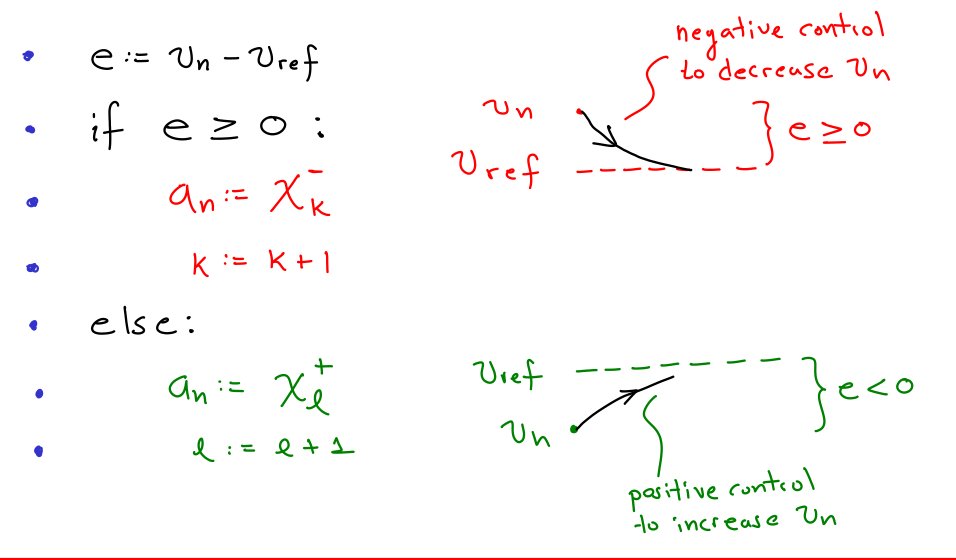 • e := vₙ − v_ref
• if e ≥ 0 :
• aₙ := χₖ⁻
• k := k + 1
• else:
• aₙ := χ_ℓ⁺
• ℓ := ℓ + 1
negative control
to decrease vₙ
vₙ
v_ref
} e ≥ 0
v_ref
vₙ
} e < 0
positive control
to increase vₙ